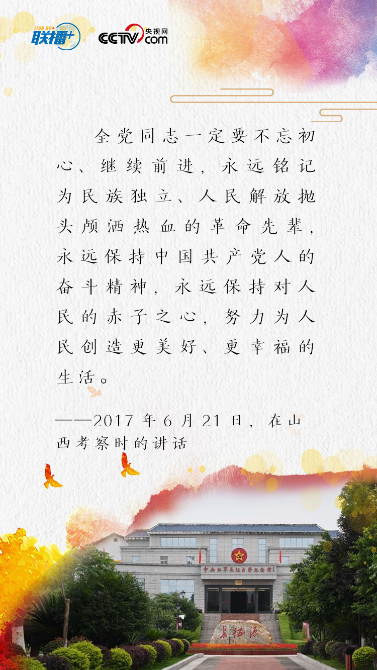 联播+ CCTV.com 央视网
全党同志一定要不忘初
心、继续前进，永远铭记
为民族独立、人民解放抛
头颅洒热血的革命先辈，
永远保持中国共产党人的
奋斗精神，永远保持对人
民的赤子之心，努力为人
民创造更美好、更幸福的
生活。
——2017 年 6 月 21 日，在山
西考察时的讲话